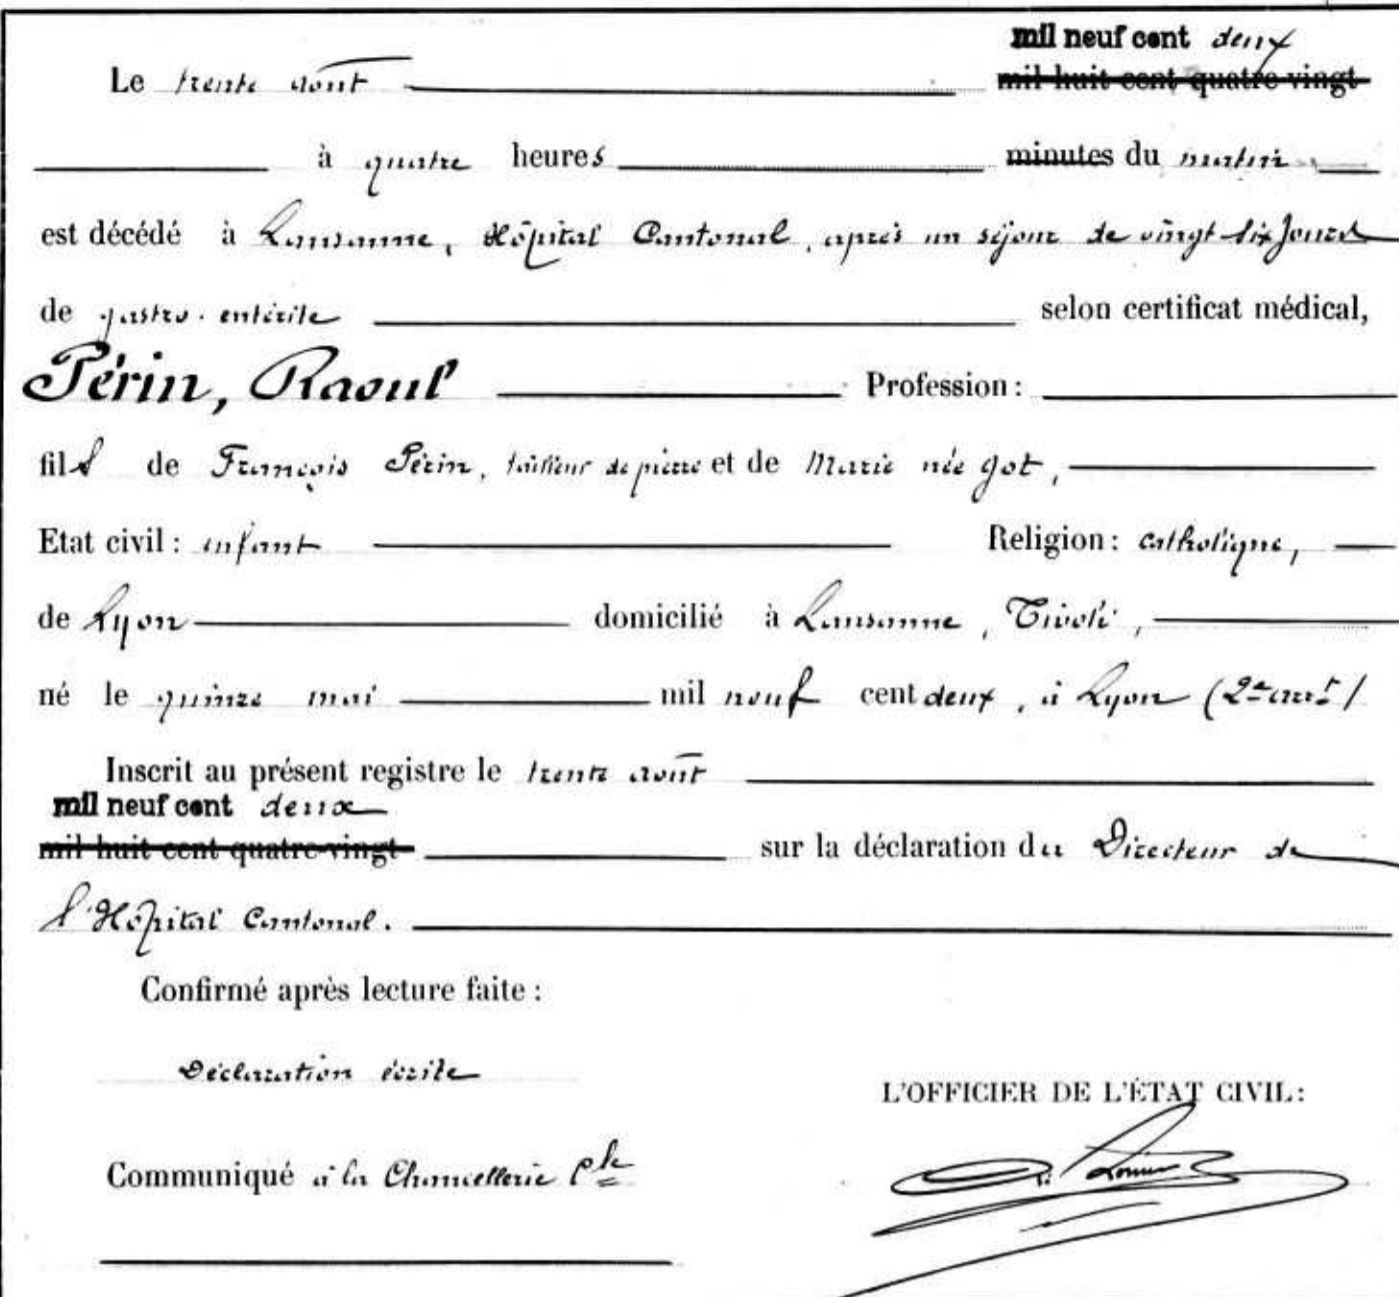 mil neuf cent deux
Le trente août mil huit cent quatre-vingt
à quatre heures minutes du matin
est décédé à Lausanne, Hôpital Cantonal, après un séjour de vingt six jours
de gastro-entérite selon certificat médical,
Périn, Raoul Profession :
fils de François Périn, tailleur de pierre et de Marie née Got,
Etat civil : enfant Religion : catholique,
de Lyon domicilié à Lausanne, Tivoli,
né le quinze mai mil neuf cent deux, à Lyon (2e arrt)
Inscrit au présent registre le trente août
mil neuf cent deux
mil huit cent quatre-vingt sur la déclaration du Directeur de
l'Hôpital Cantonal.
Confirmé après lecture faite :
Déclaration écrite
L'OFFICIER DE L'ÉTAT CIVIL :
Communiqué à la Chancellerie Cle